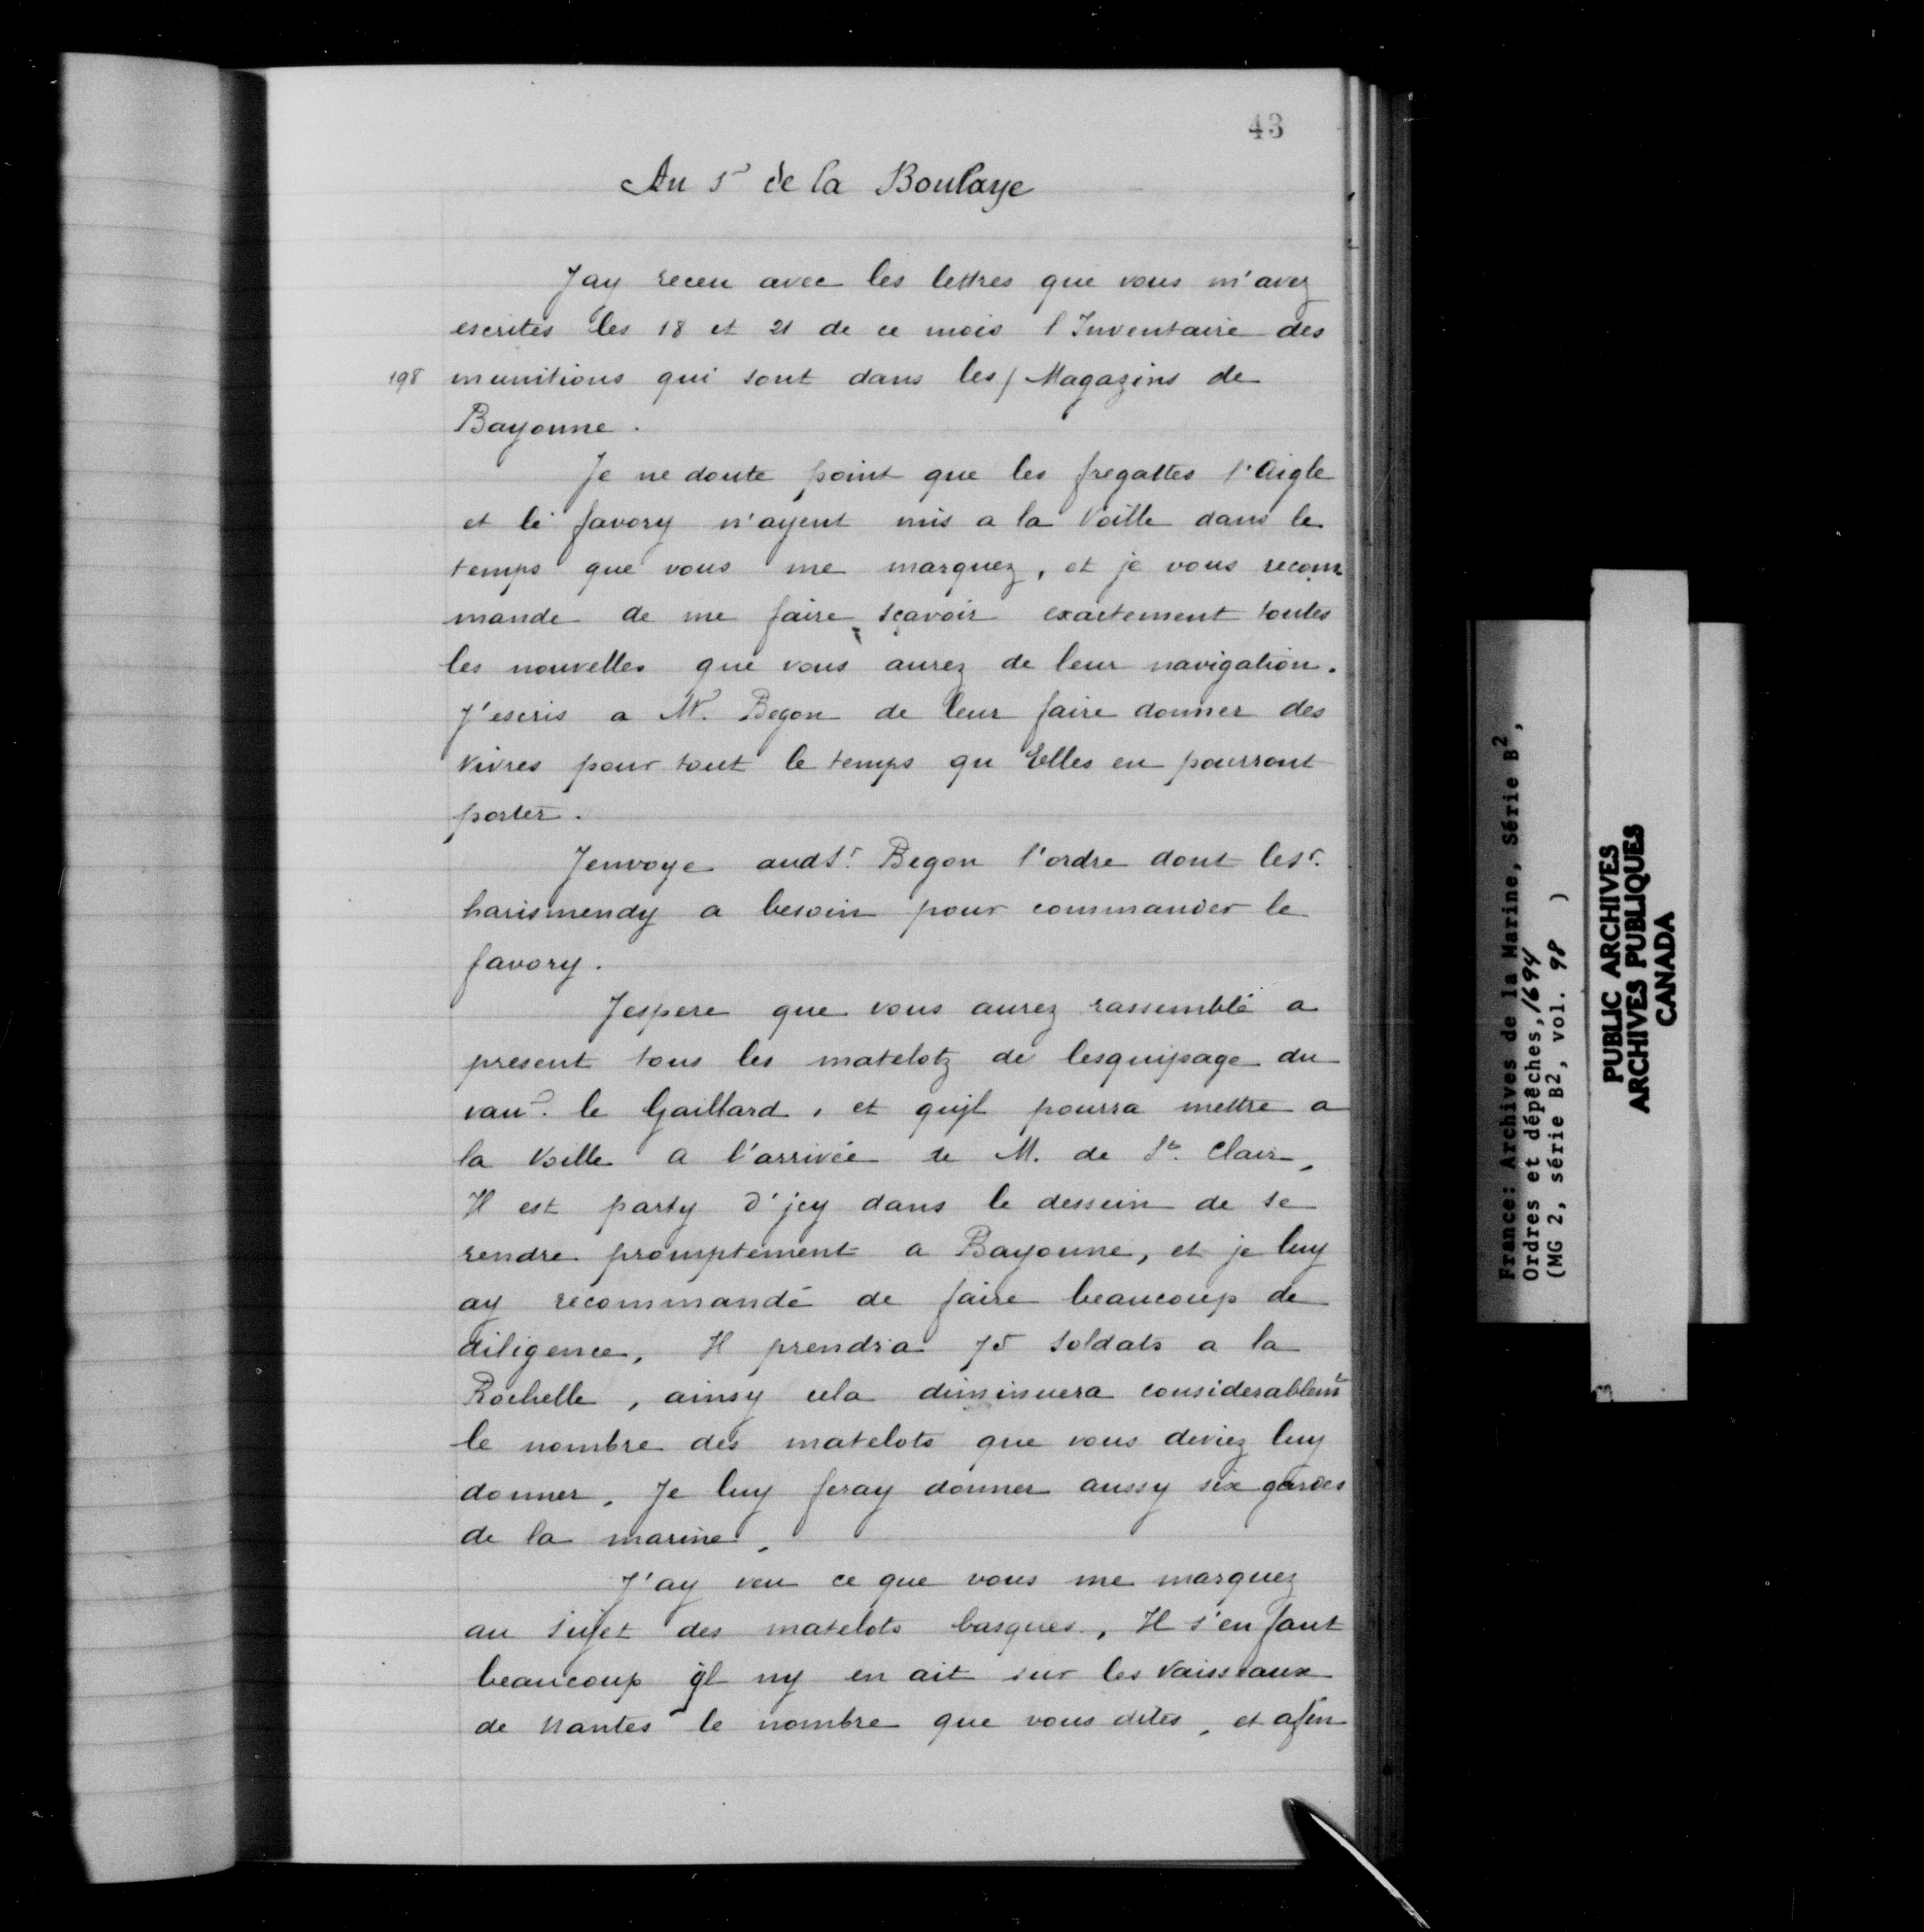 43
Au Sr de la Boulaye
Jay receu avec les lettres que vous m'avez
escrites les 18 et 21 de ce mois l Inventaire des
198 munitions qui sont dans les / Magazins de
Bayonne.
Je ne doute point que les fregattes l'Aigle
et le favory n'ayent mis a la Voille dans le
temps que vous me marquez, et je vous recom-
mande de me faire sçavoir exactement toutes
les nouvelles que vous aurez de leur navigation.
J'escris a Mr. Begon de leur faire donner des
vivres pour tout le temps qu Elles en pourront
porter.
Jenvoye aud Sr. Begon l'ordre dont les r.
harismendy a besoin pour commander le
favory.
Jespere que vous aurez rassemblé a
present tous les matelotz de lesquipage du
vau. le Gaillard, et qujl pourra mettre a
la Voille a l'arrivée de M. de St. Clair,
Il est party d'jcy dans le dessein de se
rendre promptement a Bayonne, et je luy
ay recommandé de faire beaucoup de
diligence. Il prendra 75 soldats a la
Rochelle, ainsy cela diminuera considerablemt
le nombre des matelots que vous deviez luy
donner. Je luy feray donner aussy six gardes
de la marine.
J'ay veu ce que vous me marquez
au sujet des matelots basques, Il s'en faut
beaucoup ql ny en ait sur les Vaisseaux
de Nantes le nombre que vous dites, et afin
France: Archives de la Marine, Série B2,
Ordres et dépêches, 1694
(MG 2, série B2, vol. 98 )
PUBLIC ARCHIVES
ARCHIVES PUBLIQUES
CANADA